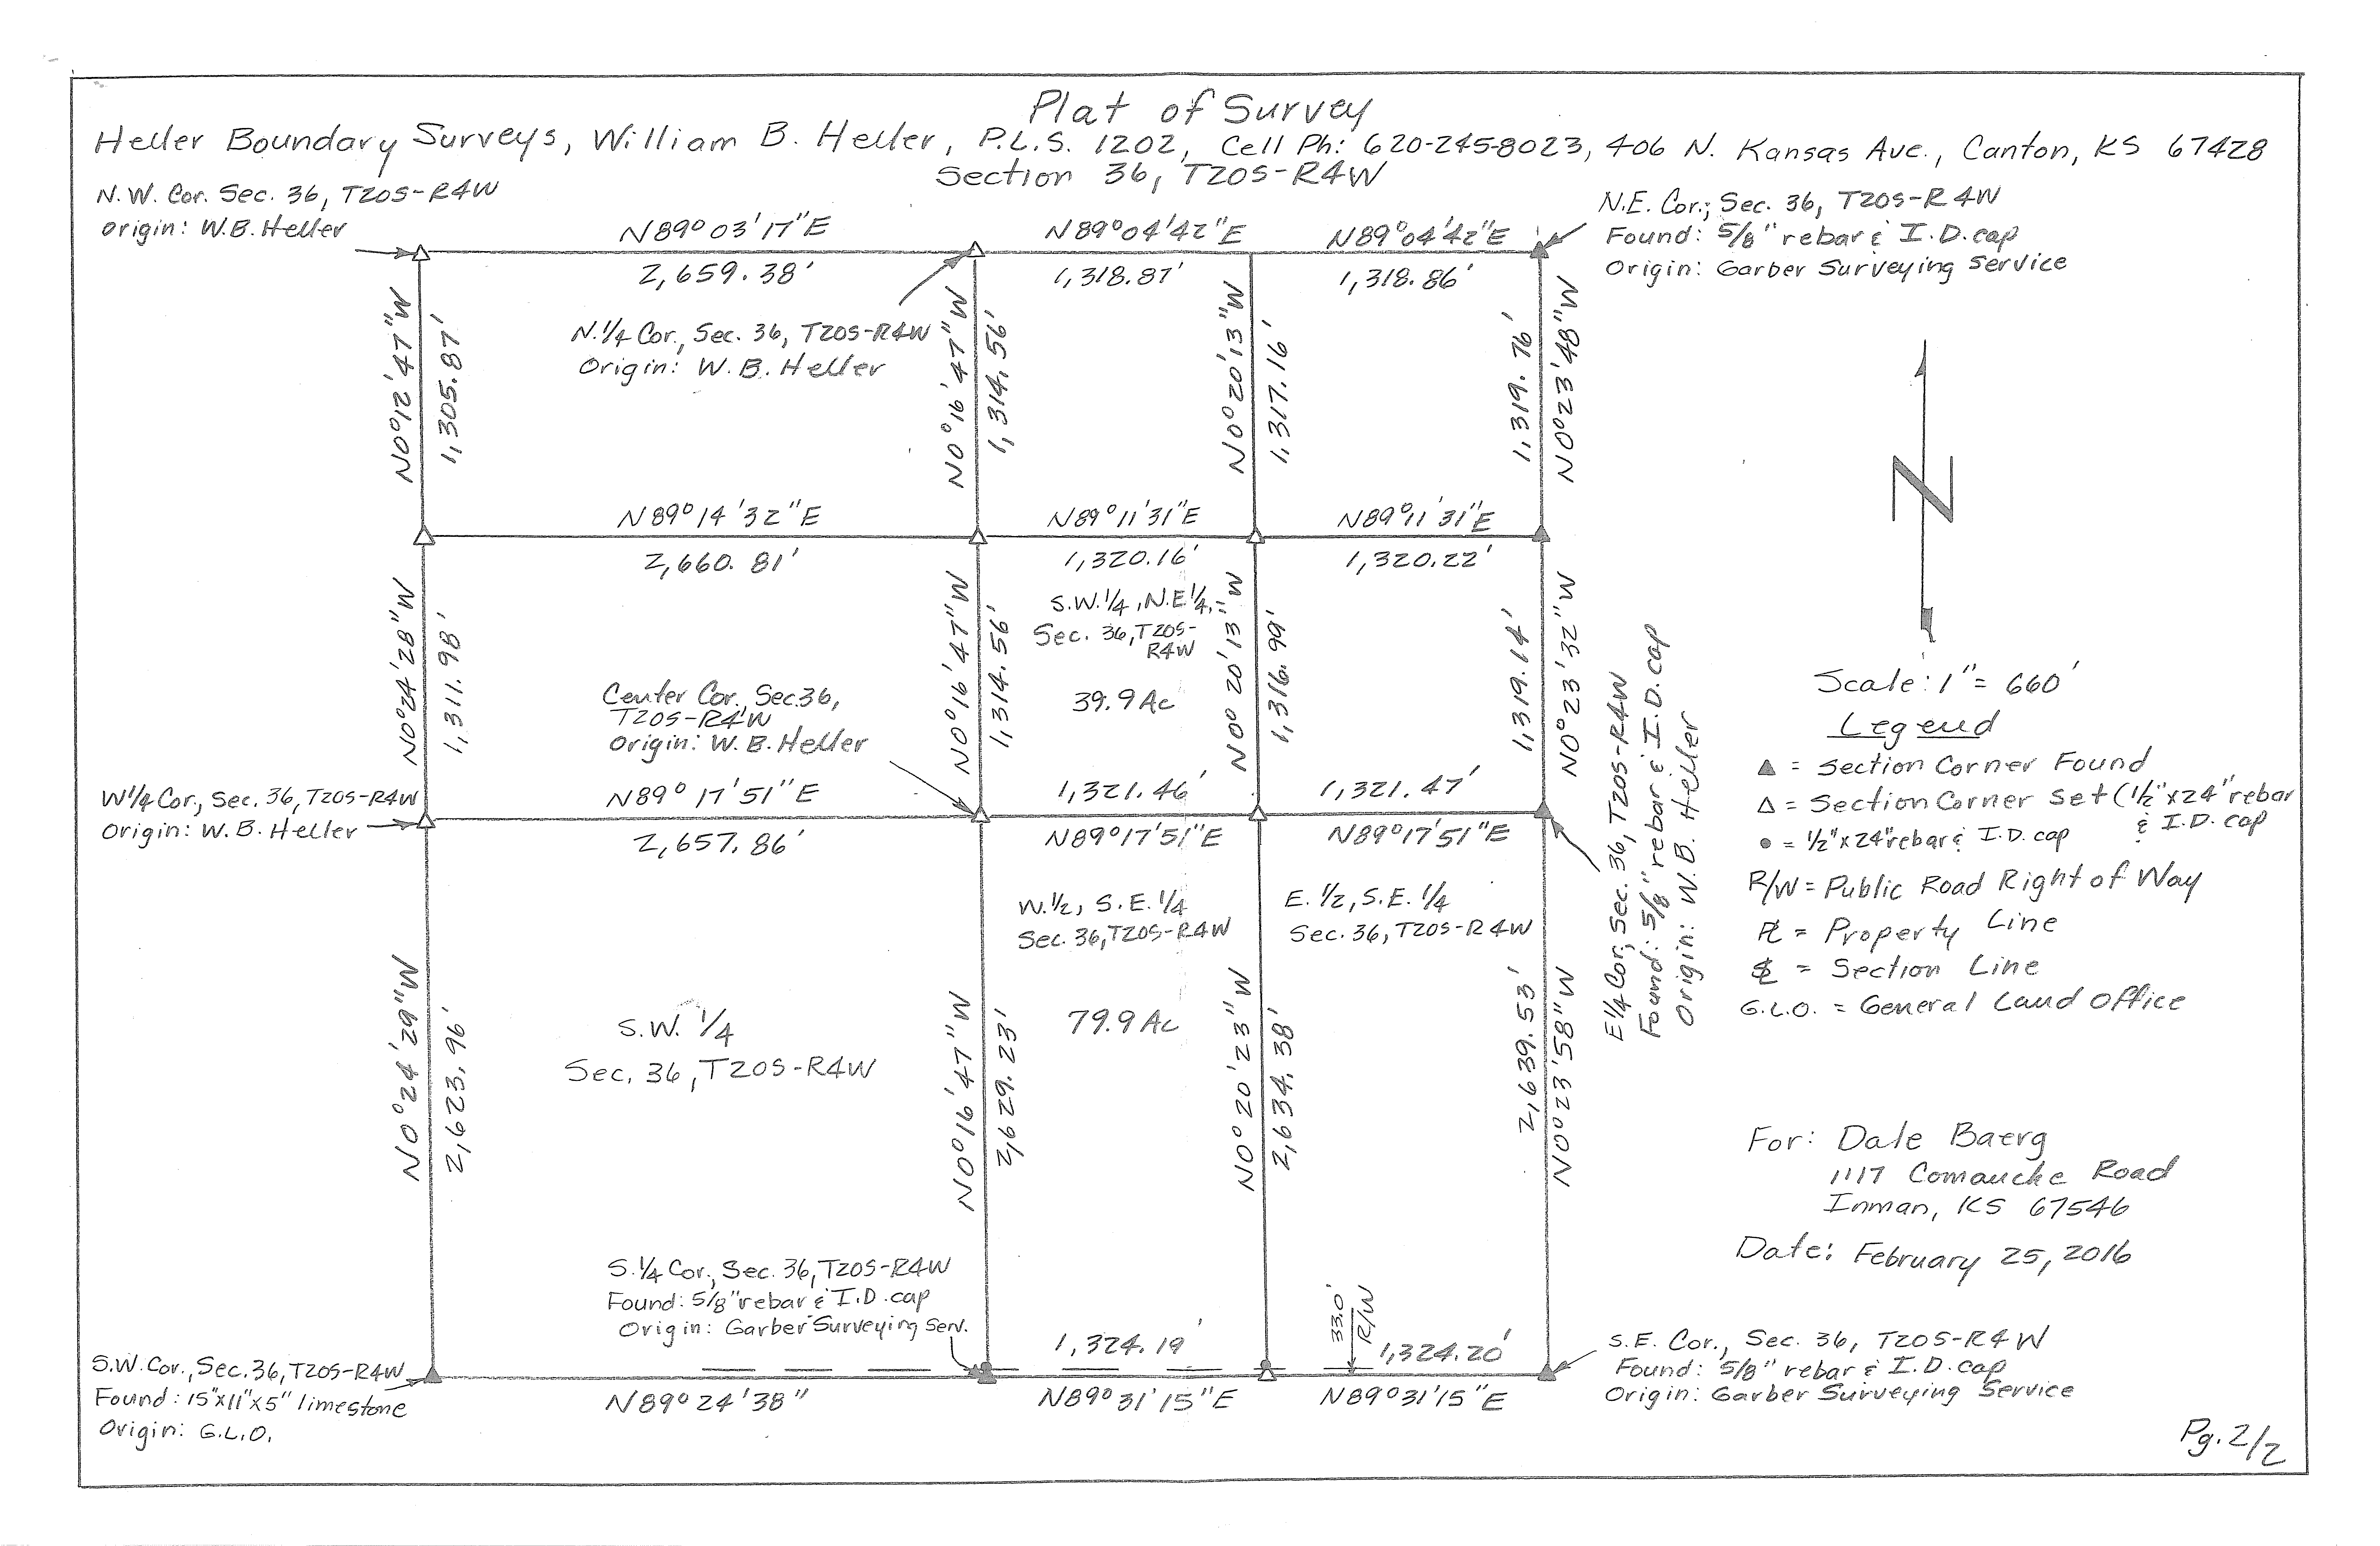 Plat of Survey
Heller Boundary Surveys, William B. Heller, P.L.S. 1202, Cell Ph: 620-245-8023, 406 N. Kansas Ave., Canton, KS 67428
Section 36, T20S-R4W
N.W. Cor. Sec. 36, T20S-R4W
Origin: W.B. Heller
N.E. Cor.; Sec. 36, T20S-R4W
Found: 5/8" rebar & I.D. cap
Origin: Garber Surveying Service
N89°03'17"E
2,659.38'
N89°04'42"E
1,318.87'
N89°04'42"E
1,318.86'
N.1/4 Cor., Sec. 36, T20S-R4W
Origin: W.B. Heller
N0°12'47"W
1,305.87'
N0°16'47"W
1,314.56'
N0°20'13"W
1,317.16'
1,319.76'
N0°23'48"W
N89°14'32"E
2,660.81'
N89°11'31"E
1,320.16'
N89°11'31"E
1,320.22'
S.W.1/4, N.E.1/4,
Sec. 36, T20S-
R4W
39.9 Ac
N0°24'28"W
1,311.98'
N0°16'47"W
1,314.56'
N0°20'13"W
1,316.99'
1,319.14'
N0°23'32"W
Center Cor., Sec. 36,
T20S-R4W
Origin: W.B. Heller
W1/4 Cor., Sec. 36, T20S-R4W
Origin: W.B. Heller
N89°17'51"E
2,657.86'
1,321.46'
N89°17'51"E
1,321.47'
N89°17'51"E
E1/4 Cor., Sec. 36, T20S-R4W
Found: 5/8" rebar & I.D. cap
Origin: W.B. Heller
N
Scale: 1" = 660'
Legend
▲ = Section Corner Found
△ = Section Corner Set (1/2"x24" rebar
& I.D. cap
● = 1/2"x24" rebar & I.D. cap
R/W = Public Road Right of Way
PL = Property Line
SL = Section Line
G.L.O. = General Land Office
W.1/2, S.E.1/4
Sec. 36, T20S-R4W
79.9 Ac
E.1/2, S.E.1/4
Sec. 36, T20S-R4W
S.W. 1/4
Sec. 36, T20S-R4W
N0°24'29"W
2,623.96'
N0°16'47"W
2,629.23'
N0°20'23"W
2,634.38'
2,639.53'
N0°23'58"W
For: Dale Baerg
1117 Comanche Road
Inman, KS 67546
Date: February 25, 2016
S.1/4 Cor., Sec. 36, T20S-R4W
Found: 5/8" rebar & I.D. cap
Origin: Garber Surveying Serv.
S.W. Cor., Sec. 36, T20S-R4W
Found: 15"x11"x5" limestone
Origin: G.L.O.
N89°24'38"
1,324.19'
N89°31'15"E
33.0'
R/W
1,324.20'
N89°31'15"E
S.E. Cor., Sec. 36, T20S-R4W
Found: 5/8" rebar & I.D. cap
Origin: Garber Surveying Service
Pg. 2/2